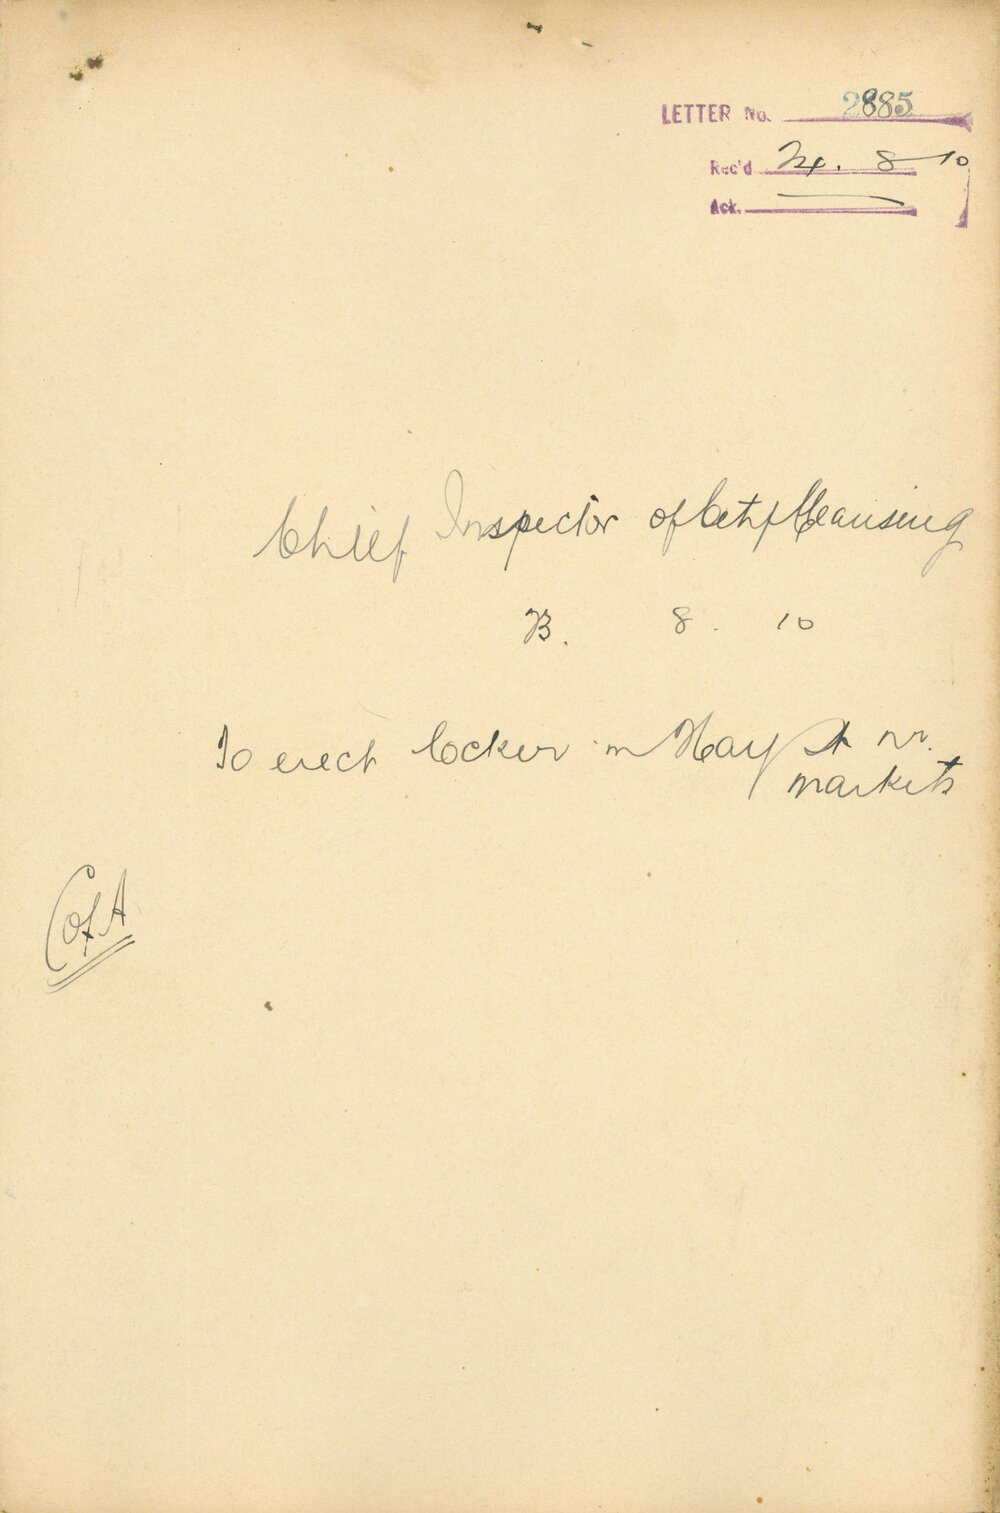 LETTER No. 2885
Rec'd 24. 8 10
Ack.
Chief Inspector of City Cleansing
23. 8. 10
To erect locker in Hay St nr.
markets
C of A